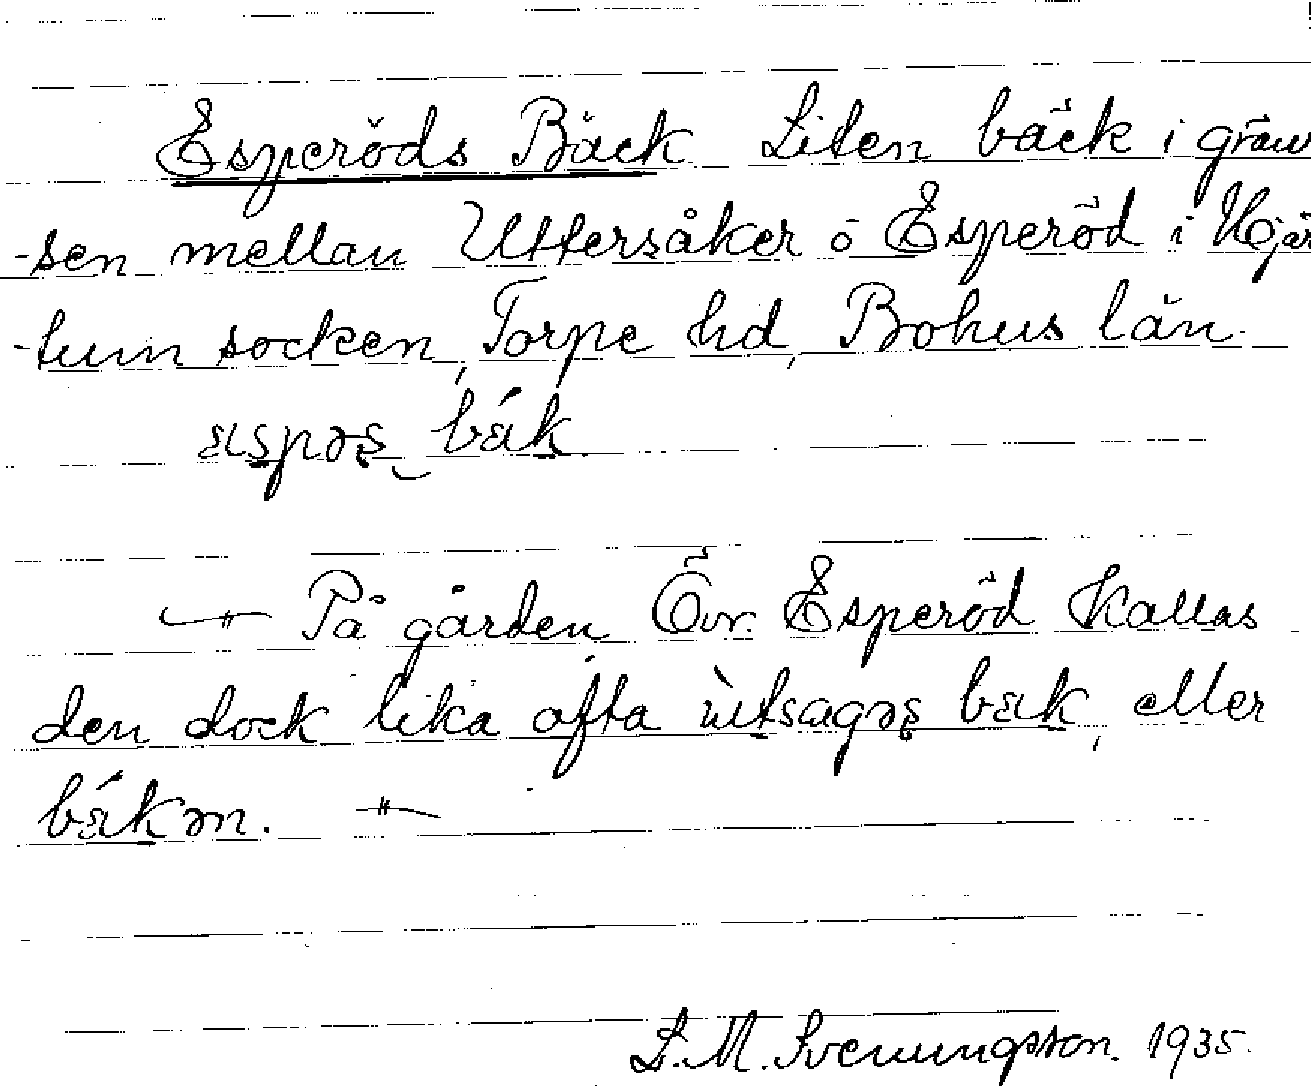 Esperöds Bäck Liten bäck i grän
-sen mellan Uttersåker o Esperöd i Hjär
-tum socken, Torpe hd, Bohus län.
bæk
På gården Öv. Esperöd Kallas
den dock lika ofta bæk, eller
bækən.
L. M. Svenungsson. 1935.